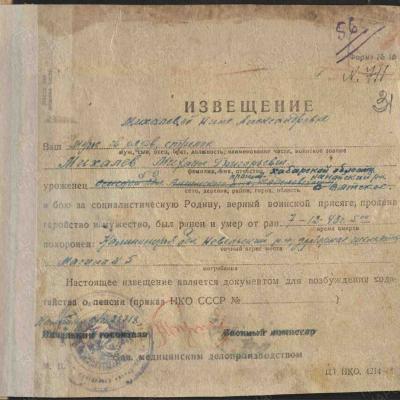 56
Форма №
3
ИЗВЕЩЕНИЕ
Михалевой Нине Александровне
Ваш муж гв. ряд. стрелок
муж, сын, отец, брат, должность, наименование части, воинское звание
Михалев Михаил Григорьевич
фамилия, имя, отчество, Хабаровской области
уроженец
село, деревня, район, город, область
в бою за социалистическую Родину, верный воинской присяге, проявив
геройство и мужество, был ранен и умер от ран 7-12-43г. 5 00
время смерти
похоронен: Калининская обл. Невельский р-н,
точный адрес места
Могила № 5
погребения
Настоящее извещение является документом для возбуждения хода-
тайства о пенсии (приказ НКО СССР № )
Начальник госпиталя Военный комиссар
Зав. медицинским делопроизводством
М. П.
ЦТ НКО. 4214-